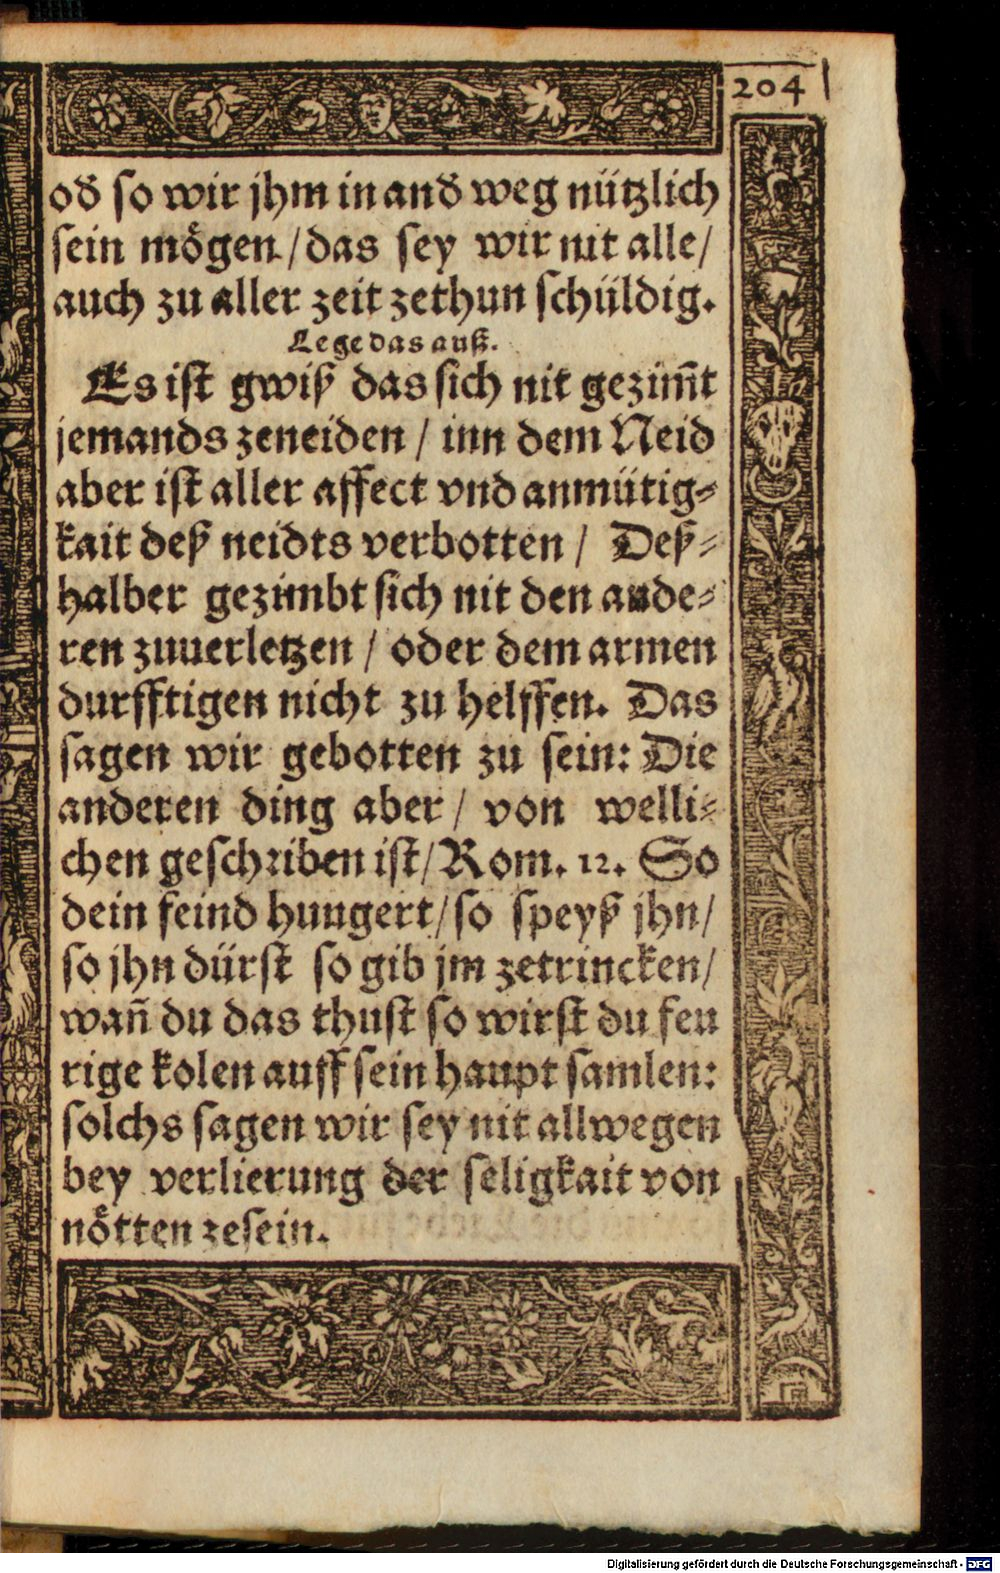 204
od̃ so wir jhm in and̃ weg nützlich
sein mögen / das sey wir nit alle /
auch zu aller zeit zethun schüldig.
Lege das auß.
Es ist gwiß das sich nit gezim̃t
jemands zeneiden / inn dem Neid
aber ist aller affect vnd anmütig⸗
kait deß neidts verbotten / Deß⸗
halber gezimbt sich nit den ande⸗
ren zuuerletzen / oder dem armen
durfftigen nicht zu helffen. Das
sagen wir gebotten zu sein: Die
anderen ding aber / von welli⸗
chen geschriben ist / Rom. 12. So
dein feind hungert / so speyß jhn /
so jhn dürst so gib jm zetrincken /
wañ du das thust so wirst du feu
rige kolen auff sein haupt samlen:
solchs sagen wir sey nit allwegen
bey verlierung der seligkait von
nötten zesein.
Digitalisierung gefördert durch die Deutsche Forschungsgemeinschaft - DFG